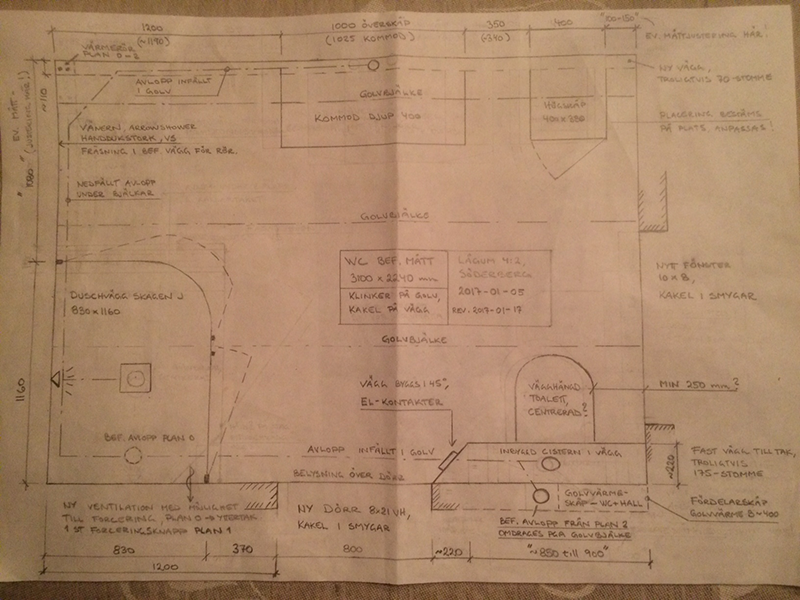 1200
(~1190)
1000 ÖVERSKÅP
(1025 KOMMOD)
350
(~340)
400
"100-150"
EV. MÅTTJUSTERING HÄR!
VÄRMERÖR
PLAN 0-2
AVLOPP INFÄLLT
I GOLV
GOLVBJÄLKE
KOMMOD DJUP 400
HÖGSKÅP
400x350
NY VÄGG,
TROLIGTVIS 70-STOMME
PLACERING BESTÄMS
PÅ PLATS ANPASSAS!
~110
EV. MÅTT-
JUSTERING HÄR!
"1080"
VÄNERN, ARROWSHOWER
HANDDUKSTORK, VS
FRÄSNING I BEF. VÄGG FÖR RÖR.
NEDFÄLLT AVLOPP
UNDER BJÄLKAR
GOLVBJÄLKE
WC BEF. MÅTT
3100 x 2240 mm
KLINKER PÅ GOLV,
KAKEL PÅ VÄGG
LÅGUM 4:2,
SÖDERBERG
2017-01-05
REV. 2017-01-17
NYTT FÖNSTER
10 x 8,
KAKEL I SMYGAR
DUSCHVÄGG SKAGEN U
830x1160
GOLVBJÄLKE
1160
VÄGG BYGGS I 45°,
EL-KONTAKTER
VÄGGHÄNGD
TOALETT,
CENTRERAD?
MIN 250 mm?
BEF. AVLOPP PLAN 0
AVLOPP INFÄLLT I GOLV
INBYGGD CISTERN I VÄGG
~220
FAST VÄGG TILL TAK,
TROLIGTVIS
175-STOMME
BELYSNING ÖVER DÖRR
NY VENTILATION MED MÖJLIGHET
TILL FORCERING, PLAN 0 → YTTERTAK
1 ST FORCERINGSKNAPP PLAN 1
NY DÖRR 8x21 VH,
KAKEL I SMYGAR
GOLVVÄRME-
SKÅP – WC+HALL
FÖRDELARSKÅP
GOLVVÄRME B~400
BEF. AVLOPP FRÅN PLAN 2
OMDRAGES PGA GOLVBJÄLKE
830
370
800
~220
"~850 till 900"
1200